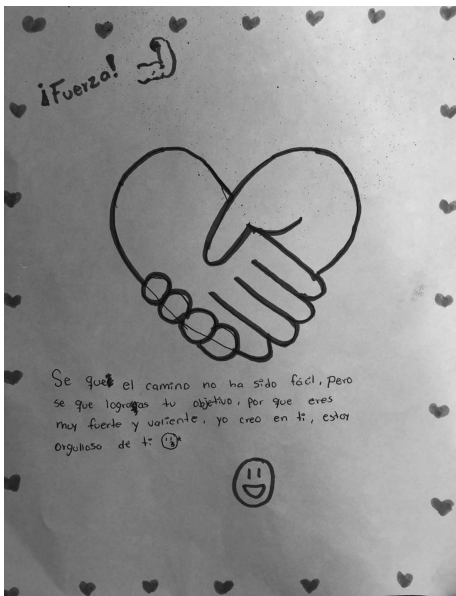 ¡Fuerza!
Se que el camino no ha sido fácil, pero
se que lograras tu objetivo, por que eres
muy fuerte y valiente, yo creo en ti, estoy
orgullosa de ti